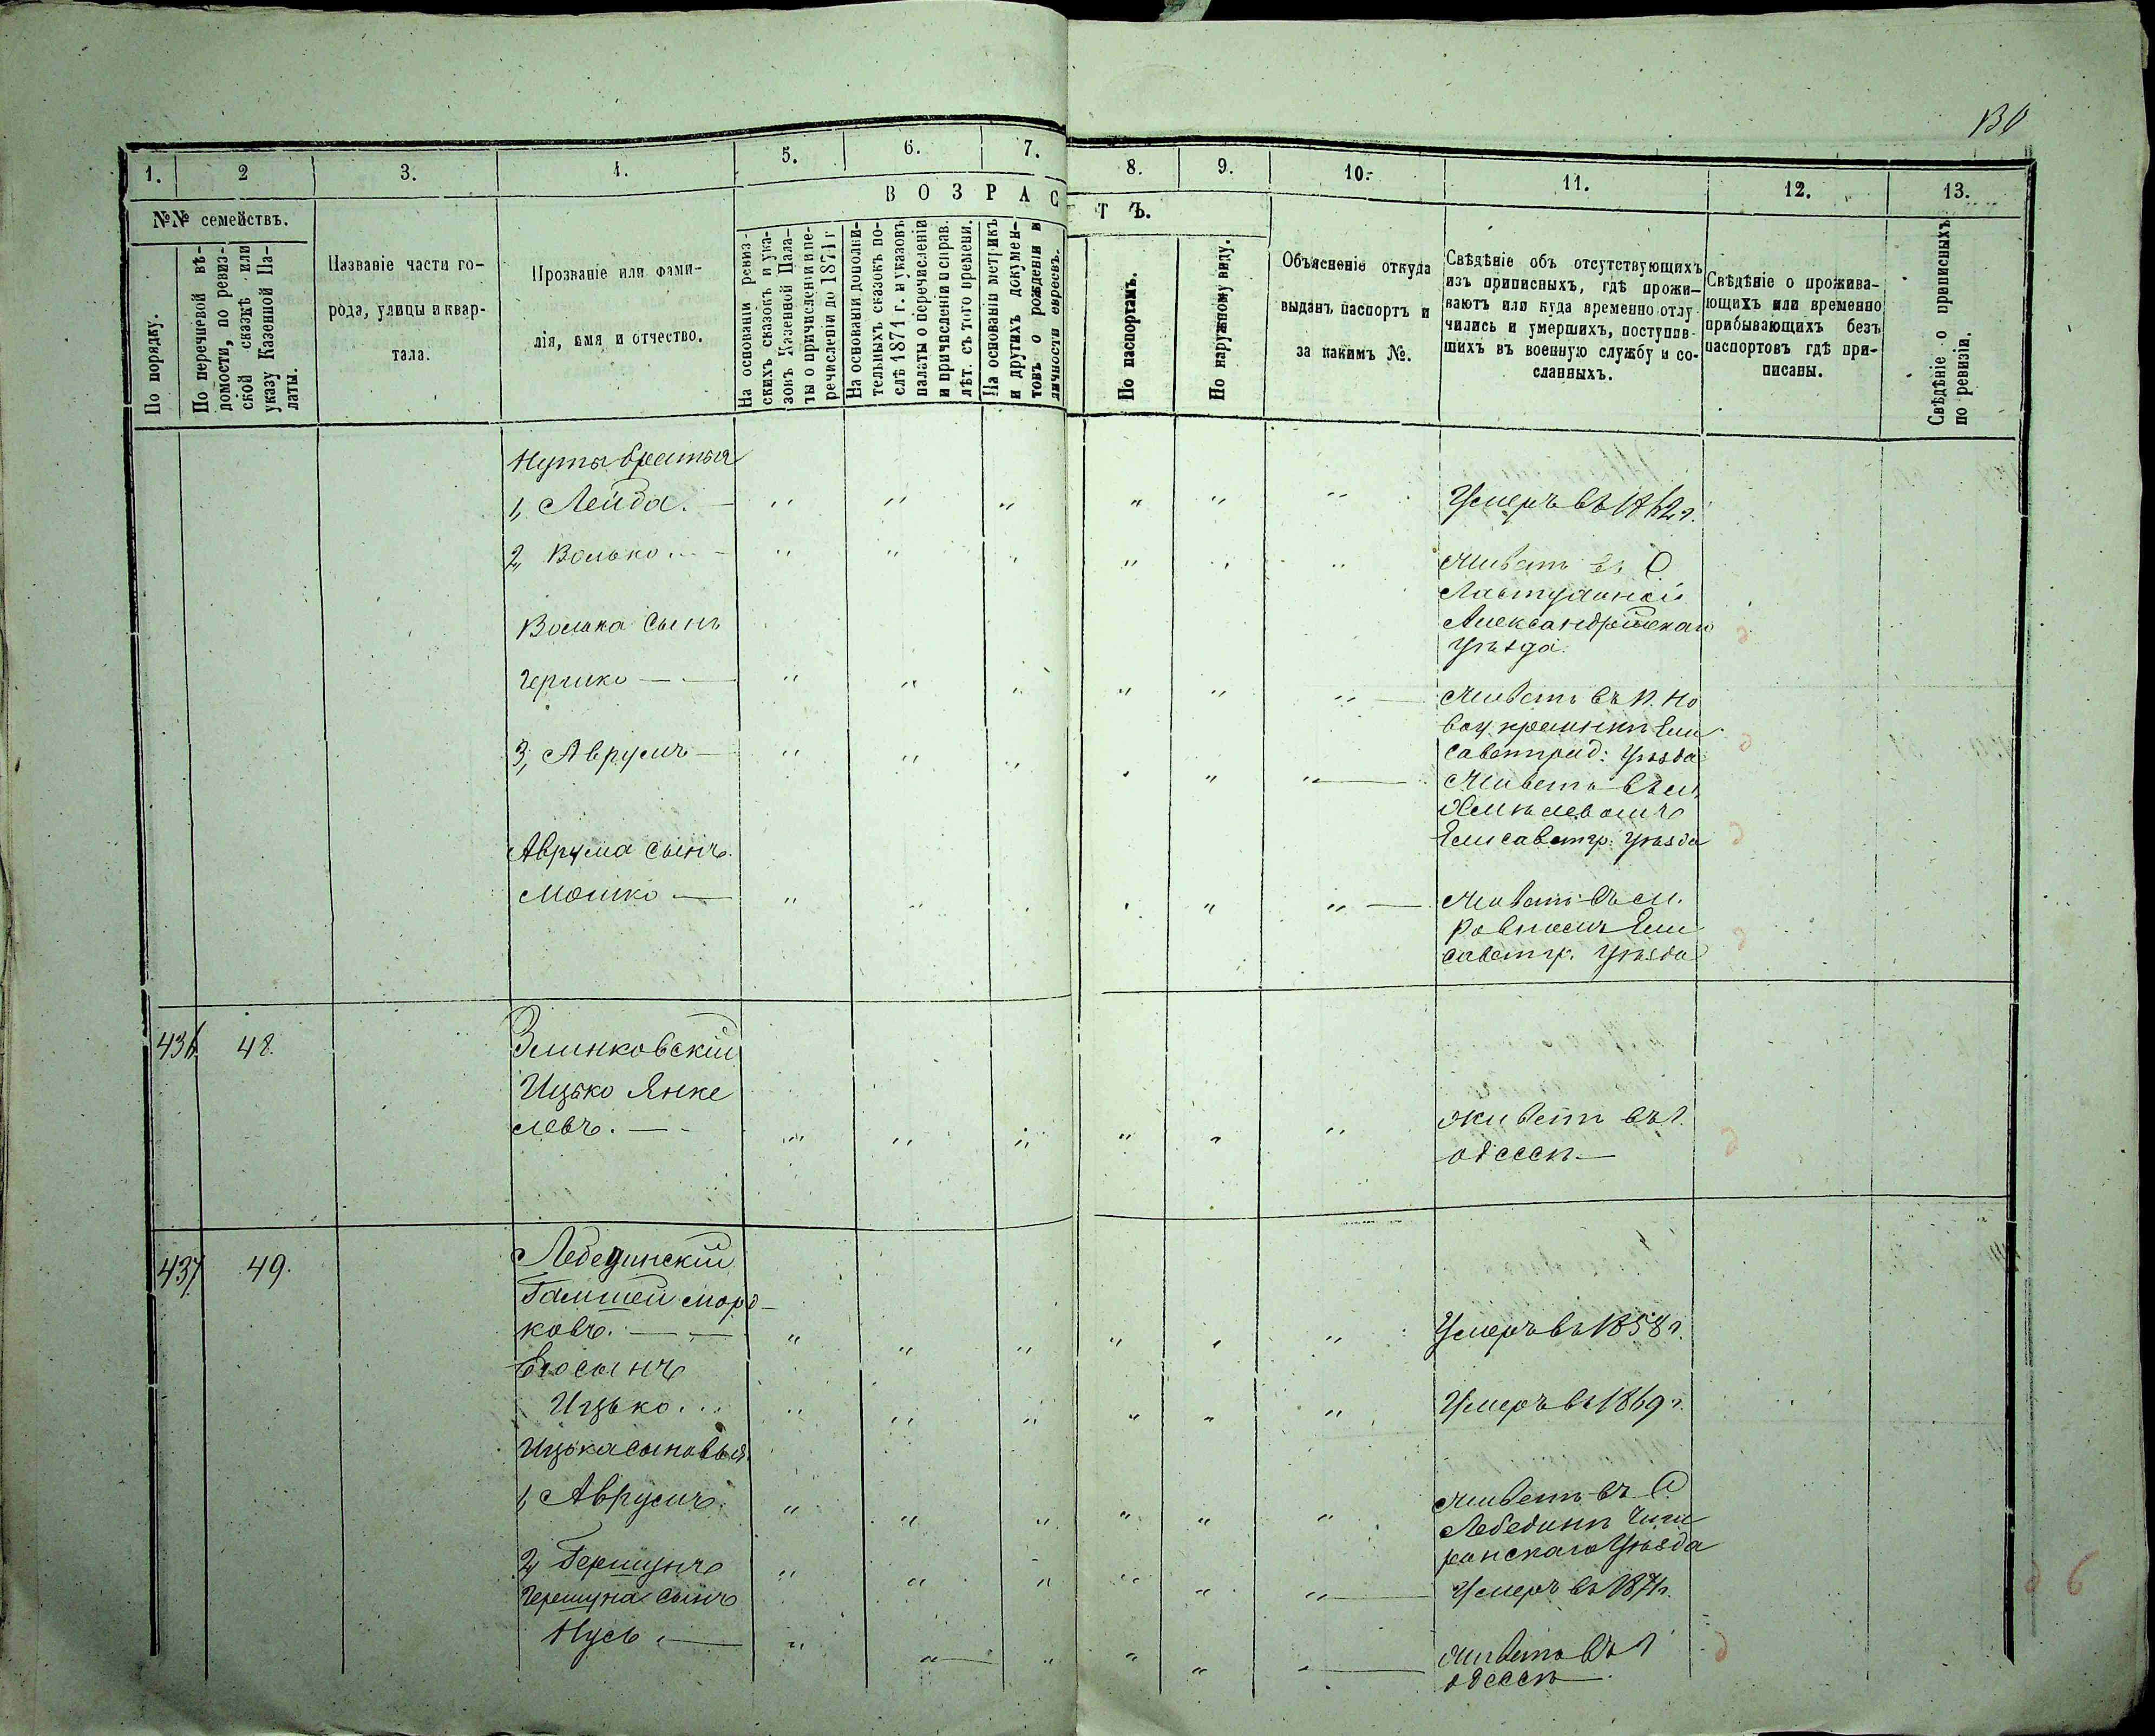 130
1. 2 3. 4. 5. 6. 7. 8. 9. 10. 11. 12. 13.
№№ семействъ.
По порядку.
По перечневой вѣ-
домости, по ревиз-
ской сказкѣ или
указу Казенной Па-
латы.
Названіе части го-
рода, улицы и квар-
тала.
Прозваніе или фами-
лія, имя и отчество.
ВОЗРАСТЪ.
На основаніи ревиз-
скихъ сказокъ и ука-
зовъ Казенной Пала-
ты о причисленіи и пе-
речисленіи до 1871 г
На основаніи дополни-
тельныхъ сказокъ по-
слѣ 1871 г. и указовъ
палаты о перечисленіи
и причисленіи и справ.
лѣт. съ того времени.
На основаніи метрикъ
и другихъ докумен-
товъ о рожденіи и
личности евреевъ.
По паспортамъ.
По наружному виду.
Объясненіе откуда
выданъ паспортъ и
за какимъ №.
Свѣдѣніе объ отсутствующихъ
изъ приписныхъ, гдѣ прожи-
ваютъ или куда временно отлу-
чились и умершихъ, поступив-
шихъ въ военную службу и со-
сланныхъ.
Свѣдѣніе о прожива-
ющихъ или временно
прибывающихъ безъ
паспортовъ гдѣ при-
писаны.
Свѣдѣніе о приписныхъ
по ревизіи.
Нуты братья
1, Лейба. Умеръ въ 1862 г.
2, Волько Живетъ въ С
Александрійскаго
уѣзда.
Волька Сынъ
Гершко Живетъ въ П. Но
вой Ели
саветград: уѣзда
3, Аврумъ Живетъ въ м.
Хмѣлевомъ
Елисаветгр: уѣзда
Аврума сынъ.
Мошко Живетъ въ м.
Ровномъ Ели
саветгр. уѣзда
436 48. Злинковскій
Ицько Янке
левъ. живетъ въ г.
одессѣ
437 49. Лебединскій
Гамшей Морд-
ковъ. Умеръ въ 1858 г.
Его сынъ
Ицько. Умеръ въ 1869 г.
Ицька сыновья
1, Аврумъ. Живетъ въ С
Лебединѣ Чиги
ринскаго уѣзда
2, Гершунъ Умеръ въ 1871 г.
Гершуна сынъ
Нусь. Живетъ въ г
одессѣ